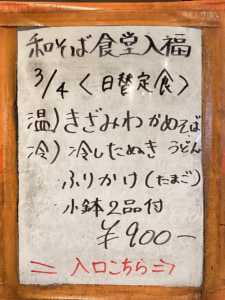 和そば食堂入福
3/4 〈日替定食〉
温) きざみわかめそば
冷) 冷したぬきうどん
ふりかけ(たまご)
小鉢2品付
¥900-
＝ 入口こちら⇒